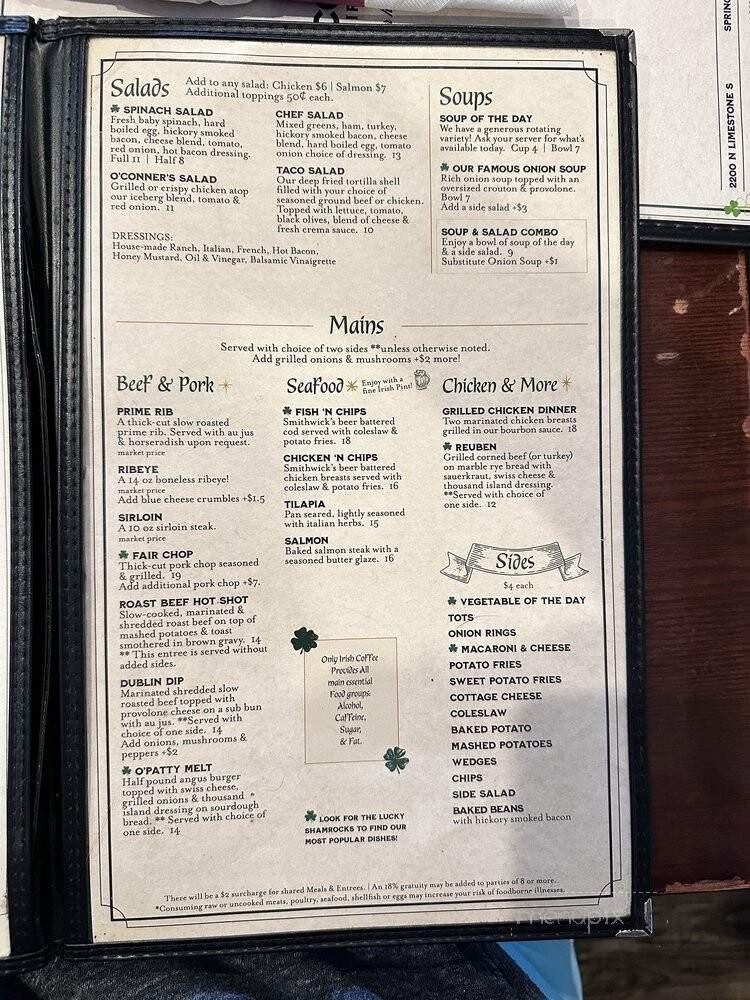 Salads
Add to any salad: Chicken $6 | Salmon $7
Additional toppings 50¢ each.
SPINACH SALAD
Fresh baby spinach, hard
boiled egg, hickory smoked
bacon, cheese blend, tomato,
red onion, hot bacon dressing.
Full 11 | Half 8
O'CONNER'S SALAD
Grilled or crispy chicken atop
our iceberg blend, tomato &
red onion. 11
CHEF SALAD
Mixed greens, ham, turkey,
hickory smoked bacon, cheese
blend, hard boiled egg, tomato
onion choice of dressing. 13
TACO SALAD
Our deep fried tortilla shell
filled with your choice of
seasoned ground beef or chicken.
Topped with lettuce, tomato,
black olives, blend of cheese &
fresh crema sauce. 10
DRESSINGS:
House-made Ranch, Italian, French, Hot Bacon,
Honey Mustard, Oil & Vinegar, Balsamic Vinaigrette
Soups
SOUP OF THE DAY
We have a generous rotating
variety! Ask your server for what's
available today. Cup 4 | Bowl 7
OUR FAMOUS ONION SOUP
Rich onion soup topped with an
oversized crouton & provolone.
Bowl 7
Add a side salad +$3
SOUP & SALAD COMBO
Enjoy a bowl of soup of the day
& a side salad. 9
Substitute Onion Soup +$1
Mains
Served with choice of two sides **unless otherwise noted.
Add grilled onions & mushrooms +$2 more!
Beef & Pork
PRIME RIB
A thick-cut slow roasted
prime rib. Served with au jus
& horseradish upon request.
market price
RIBEYE
A 14 oz boneless ribeye!
market price
Add blue cheese crumbles +$1.5
SIRLOIN
A 10 oz sirloin steak.
market price
FAIR CHOP
Thick-cut pork chop seasoned
& grilled. 19
Add additional pork chop +$7.
ROAST BEEF HOT SHOT
Slow-cooked, marinated &
shredded roast beef on top of
mashed potatoes & toast
smothered in brown gravy. 14
** This entree is served without
added sides.
DUBLIN DIP
Marinated shredded slow
roasted beef topped with
provolone cheese on a sub bun
with au jus. **Served with
choice of one side. 14
Add onions, mushrooms &
peppers +$2
O'PATTY MELT
Half pound angus burger
topped with swiss cheese,
grilled onions & thousand
island dressing on sourdough
bread. ** Served with choice of
one side. 14
Seafood
Enjoy with a
fine Irish Pint!
FISH 'N CHIPS
Smithwick's beer battered
cod served with coleslaw &
potato fries. 18
CHICKEN 'N CHIPS
Smithwick's beer battered
chicken breasts served with
coleslaw & potato fries. 16
TILAPIA
Pan seared, lightly seasoned
with italian herbs. 15
SALMON
Baked salmon steak with a
seasoned butter glaze. 16
Only Irish Coffee
Provides All
main essential
Food groups:
Alcohol,
Caffeine,
Sugar,
& Fat.
LOOK FOR THE LUCKY
SHAMROCKS TO FIND OUR
MOST POPULAR DISHES!
Chicken & More
GRILLED CHICKEN DINNER
Two marinated chicken breasts
grilled in our bourbon sauce. 18
REUBEN
Grilled corned beef (or turkey)
on marble rye bread with
sauerkraut, swiss cheese &
thousand island dressing.
**Served with choice of
one side. 12
Sides
$4 each
VEGETABLE OF THE DAY
TOTS
ONION RINGS
MACARONI & CHEESE
POTATO FRIES
SWEET POTATO FRIES
COTTAGE CHEESE
COLESLAW
BAKED POTATO
MASHED POTATOES
WEDGES
CHIPS
SIDE SALAD
BAKED BEANS
with hickory smoked bacon
There will be a $2 surcharge for shared Meals & Entrees. | An 18% gratuity may be added to parties of 8 or more.
*Consuming raw or uncooked meats, poultry, seafood, shellfish or eggs may increase your risk of foodborne illnesses.
2200 N LIMESTONE S